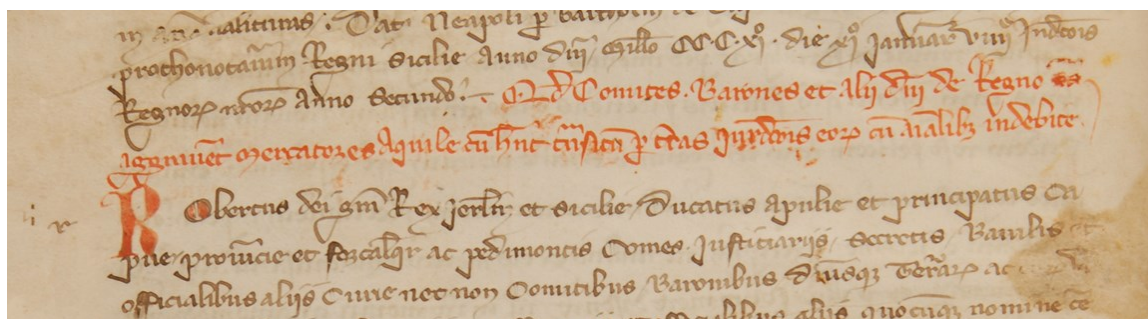 prothonotariũm Regni Sicilie Anno dñi Millo CCC.xjº. die xjº Januar viiijº Indc̃ois
Regnorꝝ nr̃orꝝ Anno Secundo. Qd̃ Comites. Barones et alij dñi de Regno
aggrauẽt mercatores Aquile cũ hñt trãsitũ p̱ tr̃as Iur̃dc̃ois eorꝝ cũ aĩalibꝫ indebite.
Robertus dei gr̃a Rex Ierlm̃ et Sicilie, Ducatus Apulie et principatus Ca
pue, prouĩcie et forcalq̃r ac pedimontis Comes. Justitiarijs, Secretis, Baiulis
officialibus alijs Curie nec non Comitibus Baronibus dñisqꝫ Terrarꝝ ac
alijs quocũqꝫ nomine ce